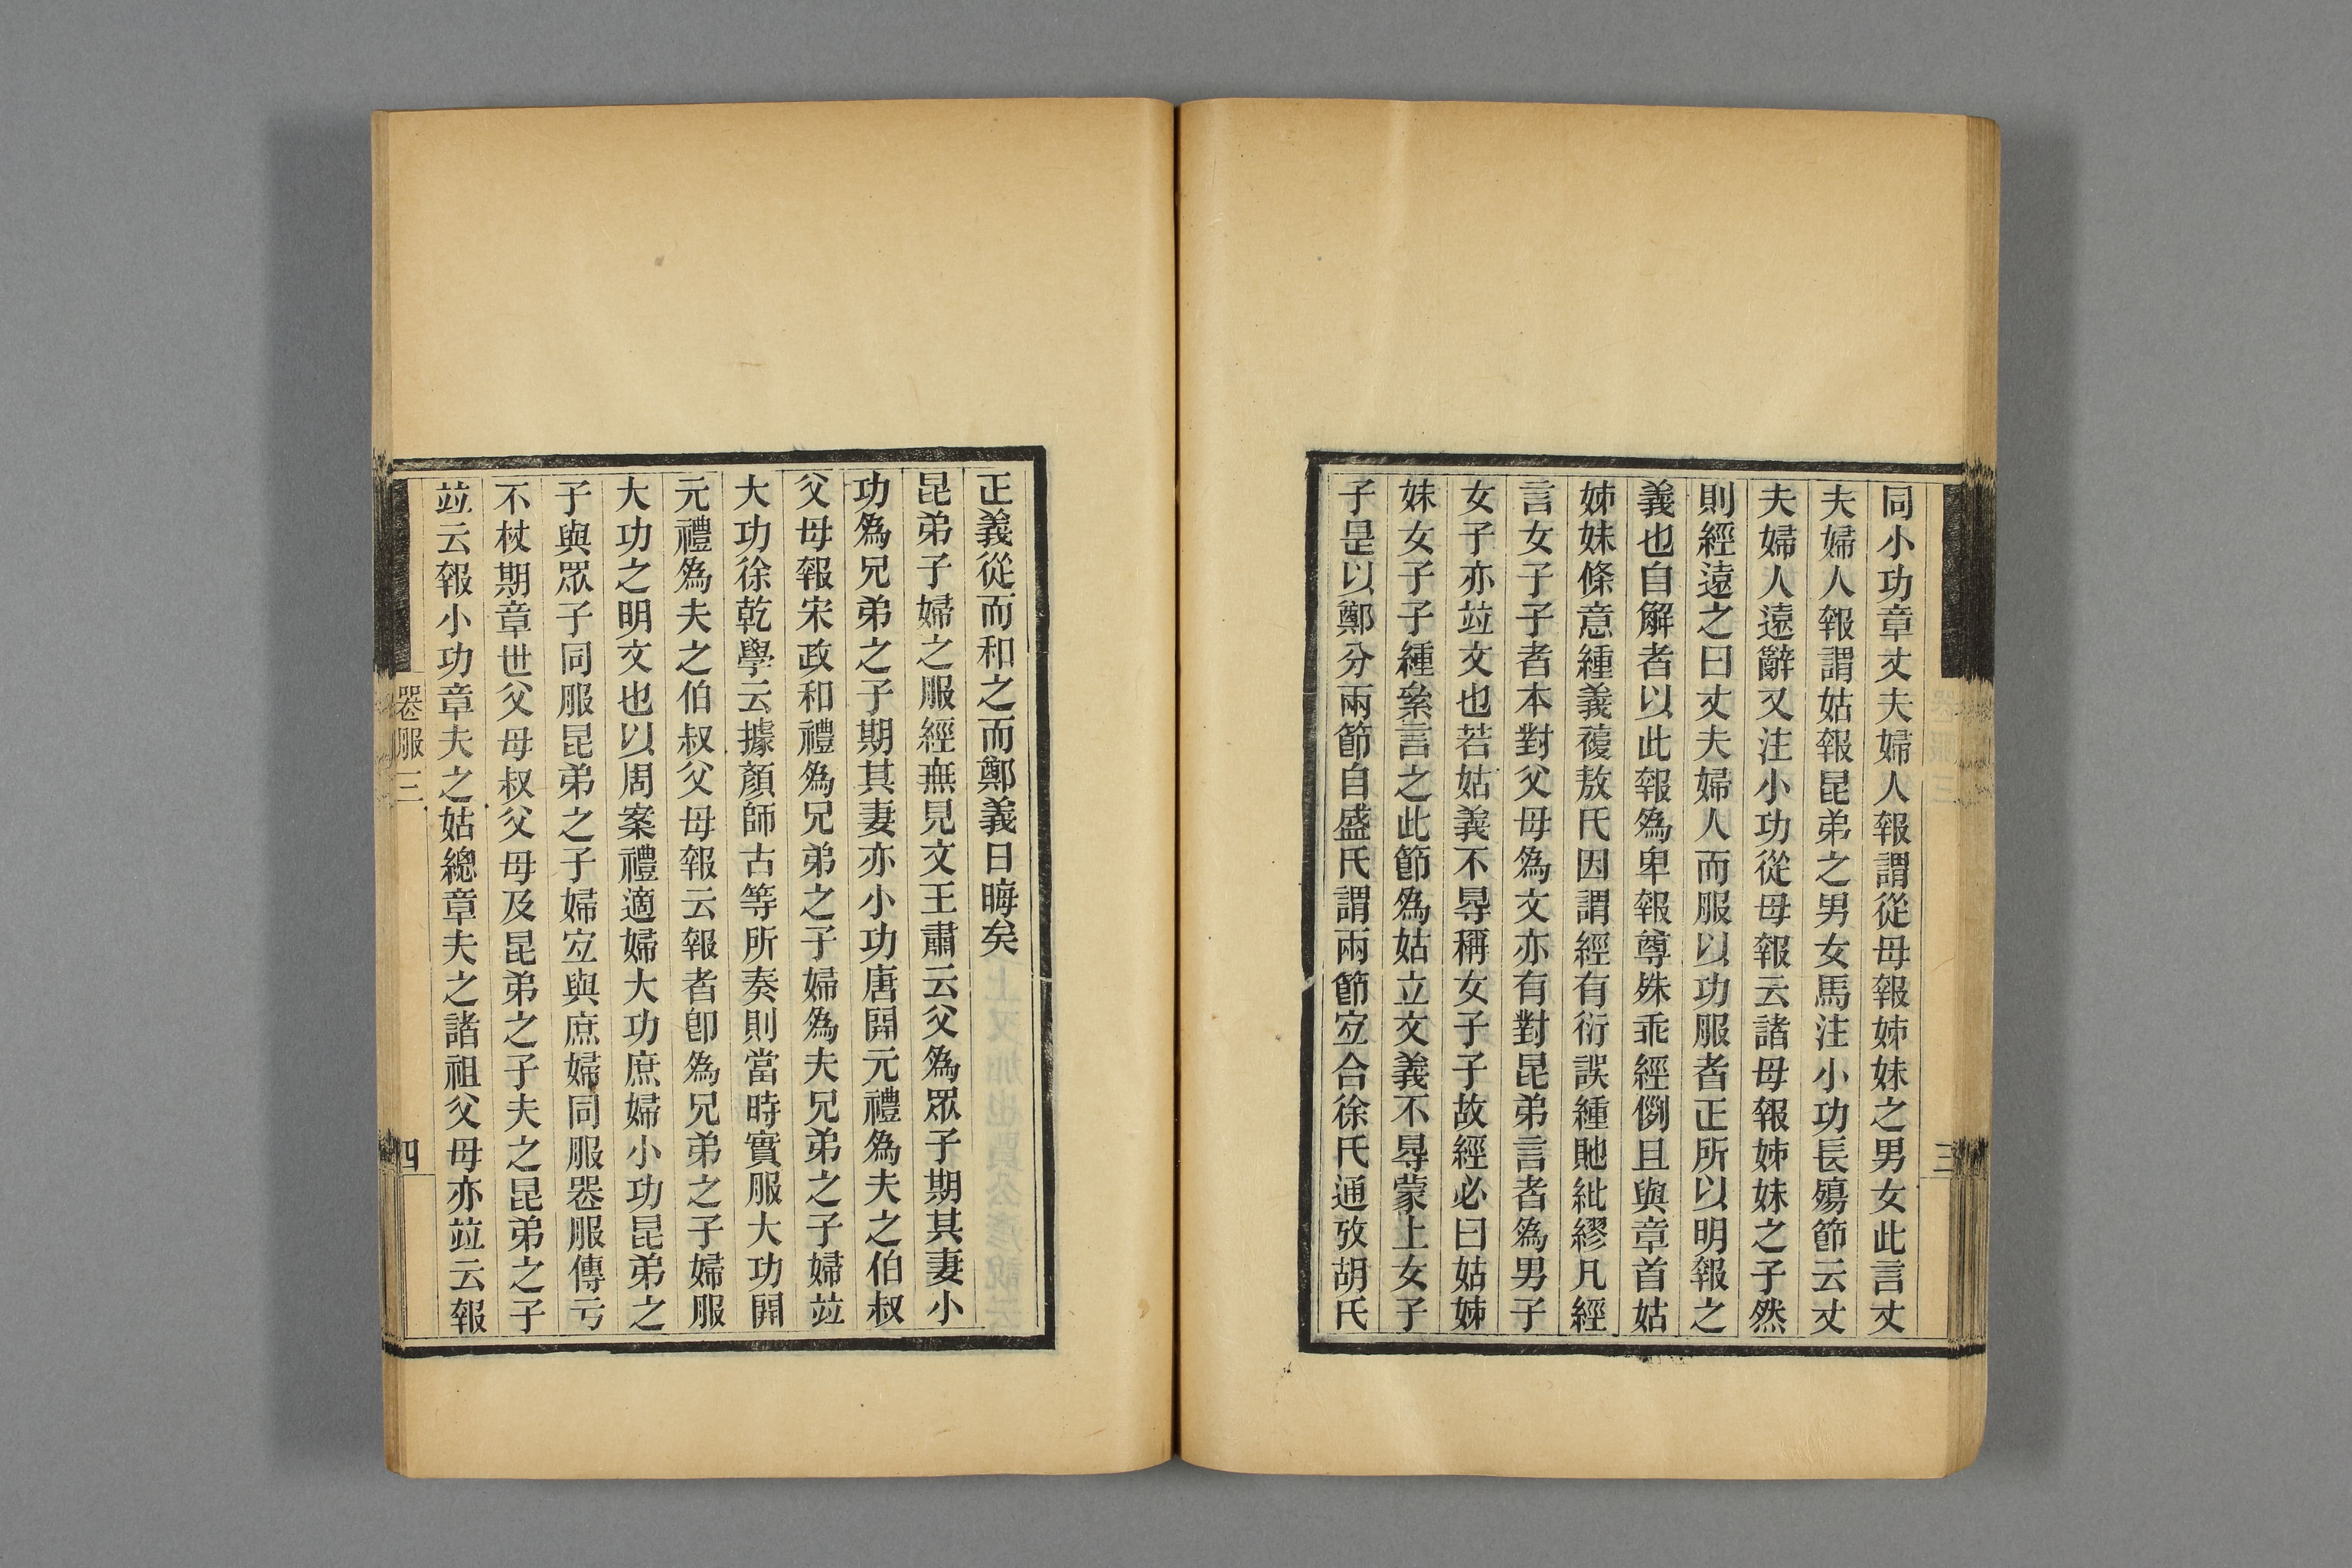 同小功章丈夫婦人報謂從母報姊妹之男女此言丈
夫婦人報謂姑報昆弟之男女馬注小功長殤節云丈
夫婦人遠辭又注小功從母報云諸母報姊妹之子然
則經遠之曰丈夫婦人而服以功服者正所以明報之
義也自解者以此報爲卑報尊殊乖經例且與章首姑
姊妹條意緟義複敖氏因謂經有衍誤緟貤紕繆凡經
言女子子者本對父母爲文亦有對昆弟言者爲男子
女子亦竝文也若姑義不㝵稱女子子故經必曰姑姊
妹女子子緟絫言之此節爲姑立文義不㝵蒙上女子
子是以鄭分兩節自盛氏謂兩節宐合徐氏通攷胡氏
三
正義從而和之而鄭義日晦矣
昆弟子婦之服經無見文王肅云父爲眾子期其妻小
功爲兄弟之子期其妻亦小功唐開元禮爲夫之伯叔
父母報宋政和禮爲兄弟之子婦爲夫兄弟之子婦竝
大功徐乾學云據顏師古等所奏則當時實服大功開
元禮爲夫之伯叔父母報云報者卽爲兄弟之子婦服
大功之明文也以周案禮適婦大功庶婦小功昆弟之
子與眾子同服昆弟之子婦宐與庶婦同服喪服傳亏
不杖期章世父母叔父母及昆弟之子夫之昆弟之子
竝云報小功章夫之姑總章夫之諸祖父母亦竝云報
喪服三
四